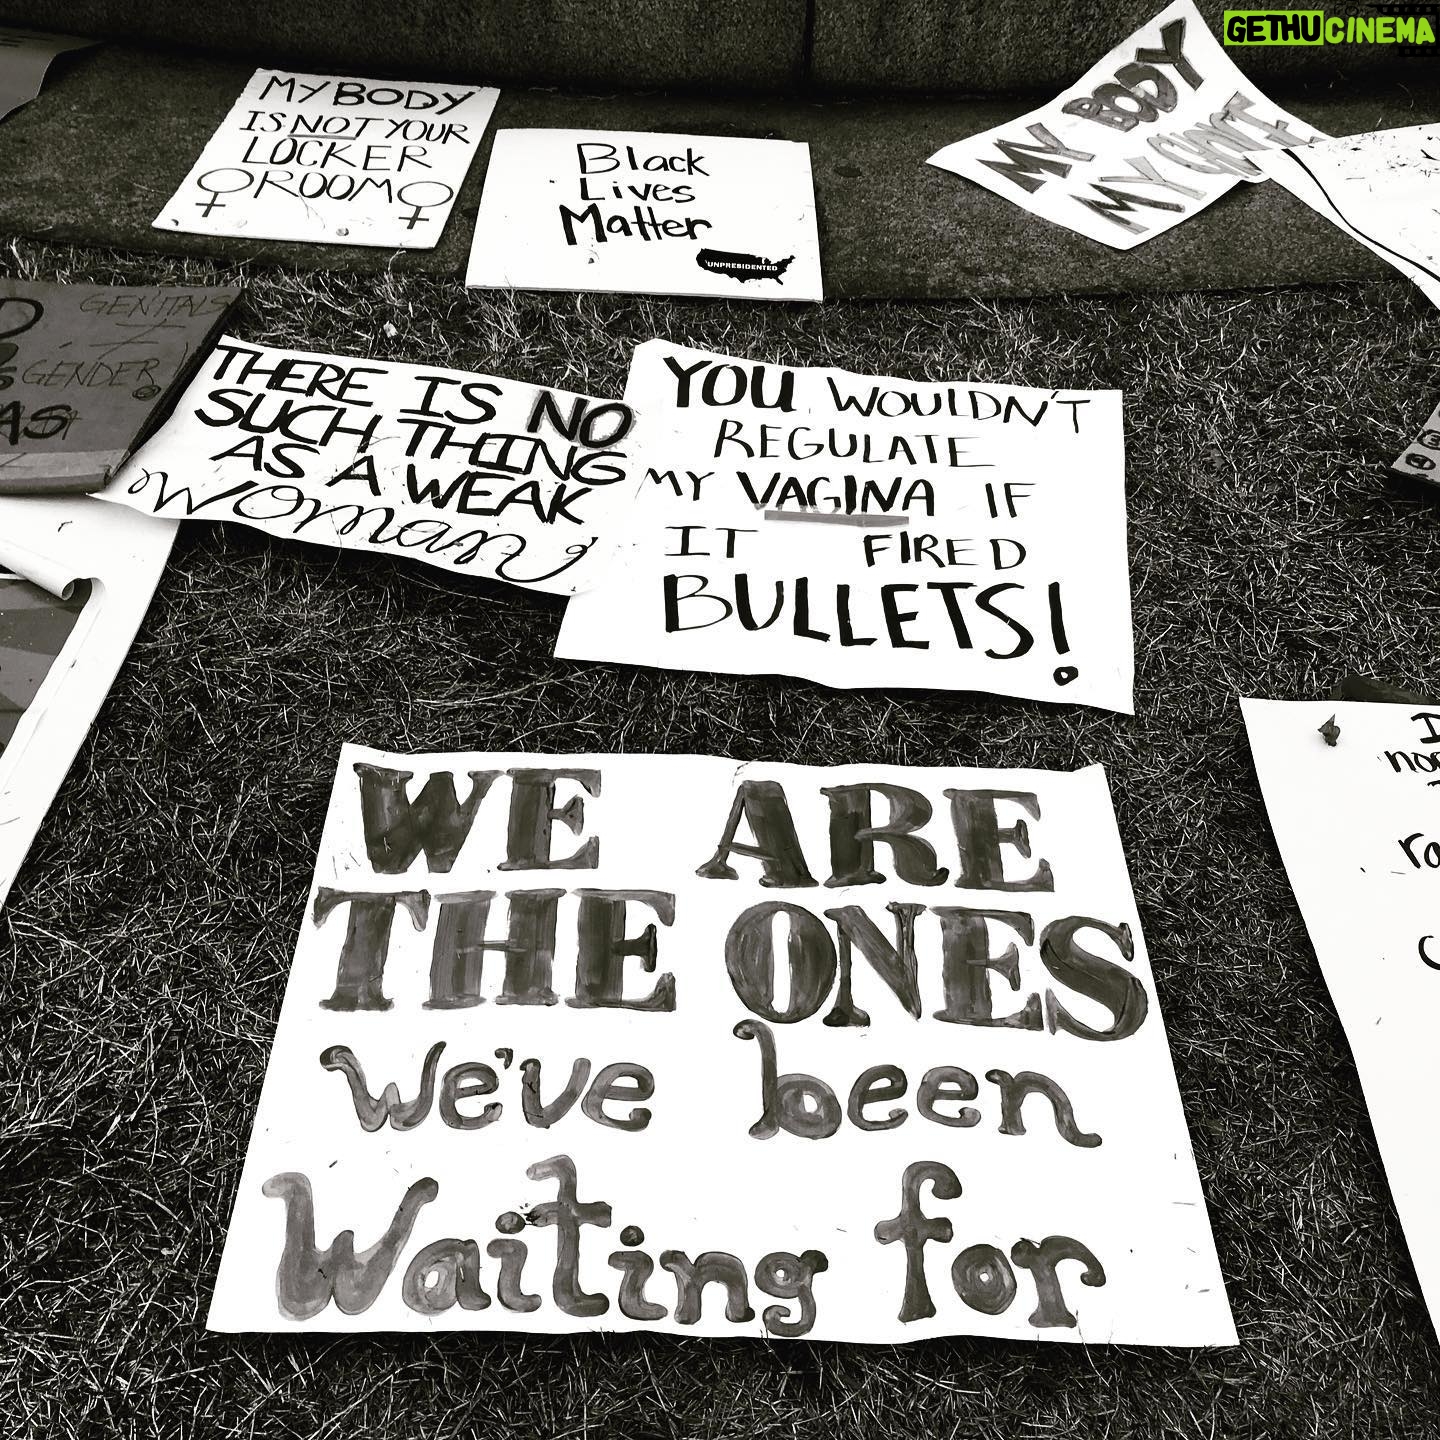 GETHUCINEMA
MY BODY
IS NOT YOUR
LOCKER
ROOM
Black
Lives
Matter
UNPRESIDENTED
MY BODY
MY CHOICE
GENITALS
≠
GENDER
THERE IS NO
SUCH THING
AS A WEAK
woman
YOU WOULDN'T
REGULATE
MY VAGINA IF
IT FIRED
BULLETS!
WE ARE
THE ONES
we've been
waiting for